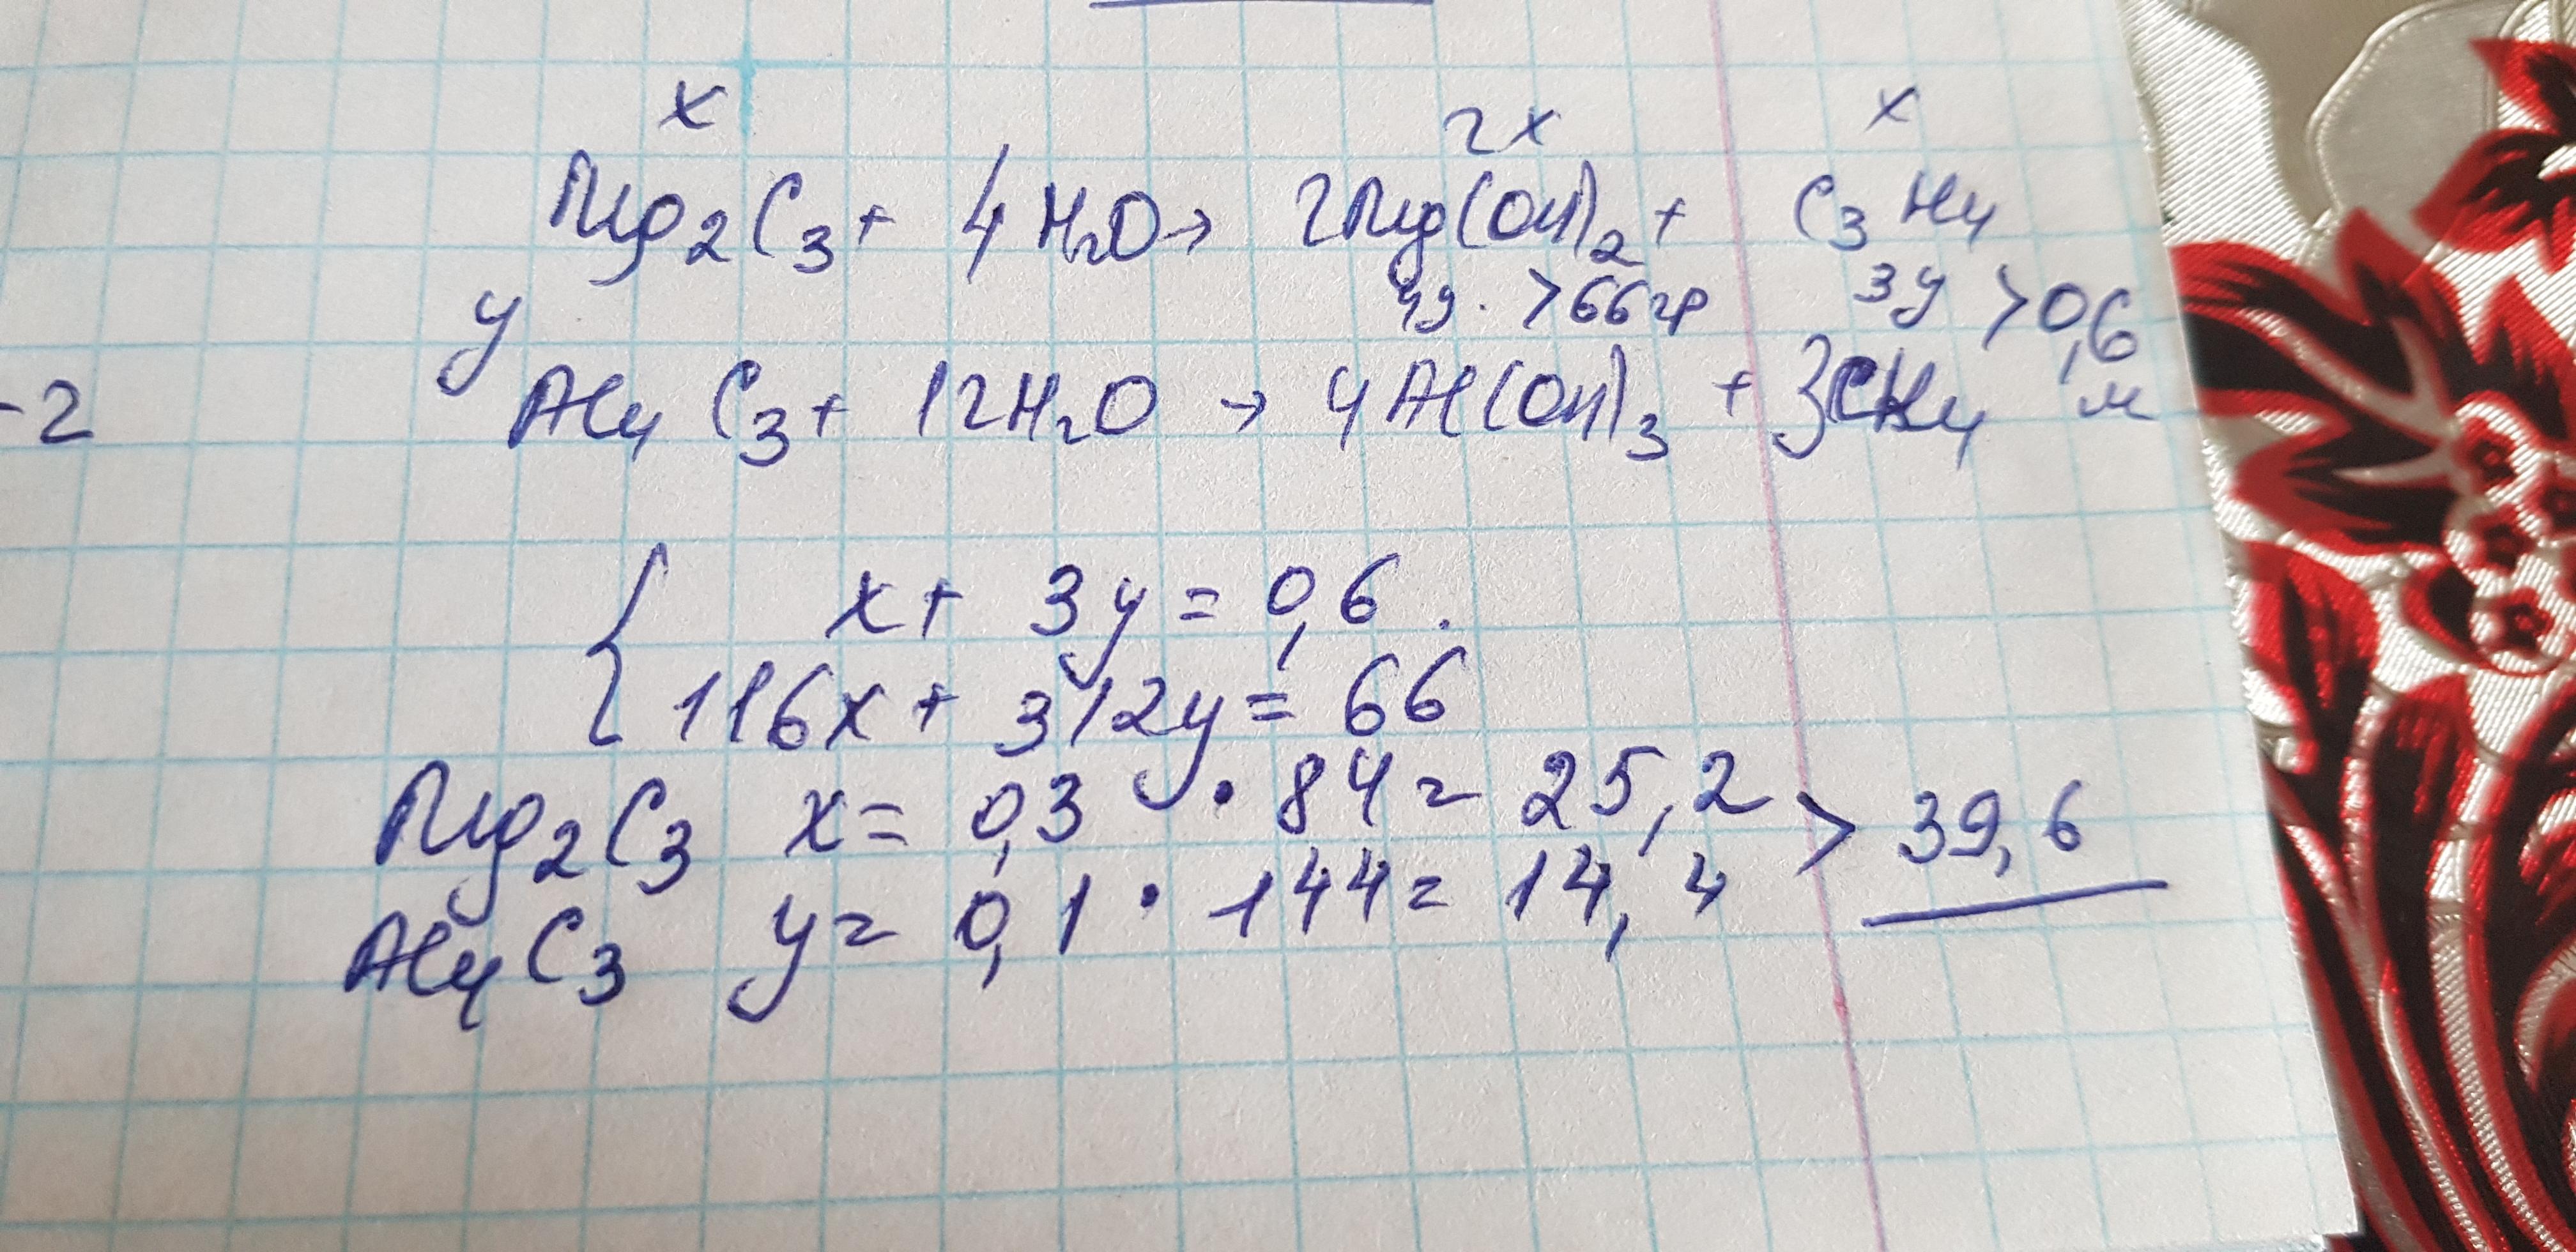 x 2x x
Mg2C3 + 4H2O → 2Mg(OH)2 + C3H4
y 4y. >66гр 3y >0,6 м
-2 Al4C3 + 12H2O → 4Al(OH)3 + 3CH4
{ x + 3y = 0,6.
116x + 312y = 66
Mg2C3 x = 0,3 · 84 = 25,2 > 39,6
Al4C3 y = 0,1 · 144 = 14,4